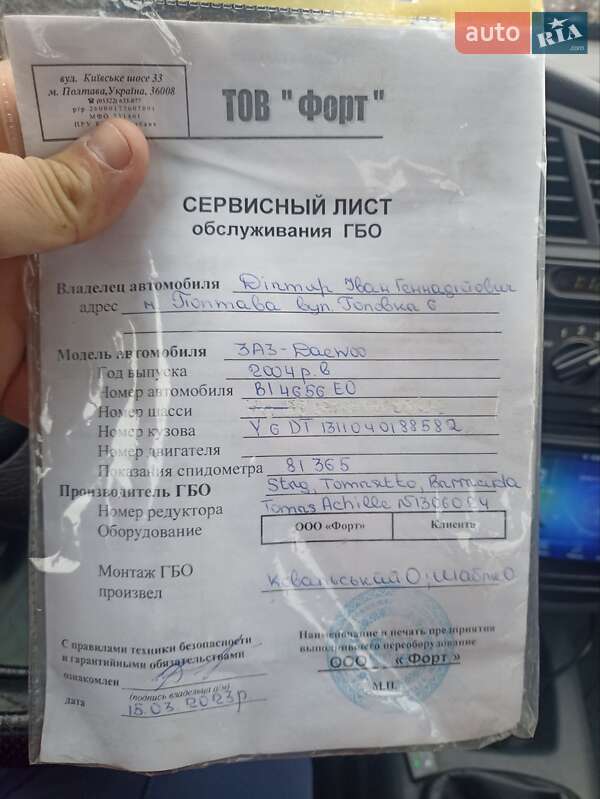 auto RIA .com
вул. Київське шосе 33
м. Полтава,Україна, 36008
ТОВ "Форт"
СЕРВИСНЫЙ ЛИСТ
обслуживания ГБО
Владелец автомобиля Діптар Іван Геннадійович
адрес м Полтава вул. Головка 6
Модель автомобиля ЗАЗ-Daewoo
Год выпуска 2004 р.в
Номер автомобиля BI4656EO
Номер шасси
Номер кузова Y6DT1311040188582
Номер двигателя
Показания спидометра 81365
Производитель ГБО Stag, Tomasetto, Barracuda
Номер редуктора Tomas Achille N1306064
Оборудование ООО «Форт» Клиента
Монтаж ГБО Ковальський О;
произвел
С правилами техники безопасности
и гарантийными обязательствами
ознакомлен
(подпись владельца а/м)
дата 15.03 2023р
Наименование и печать предприятия
выполнившего переоборудование
ООО «Форт»
М.П.